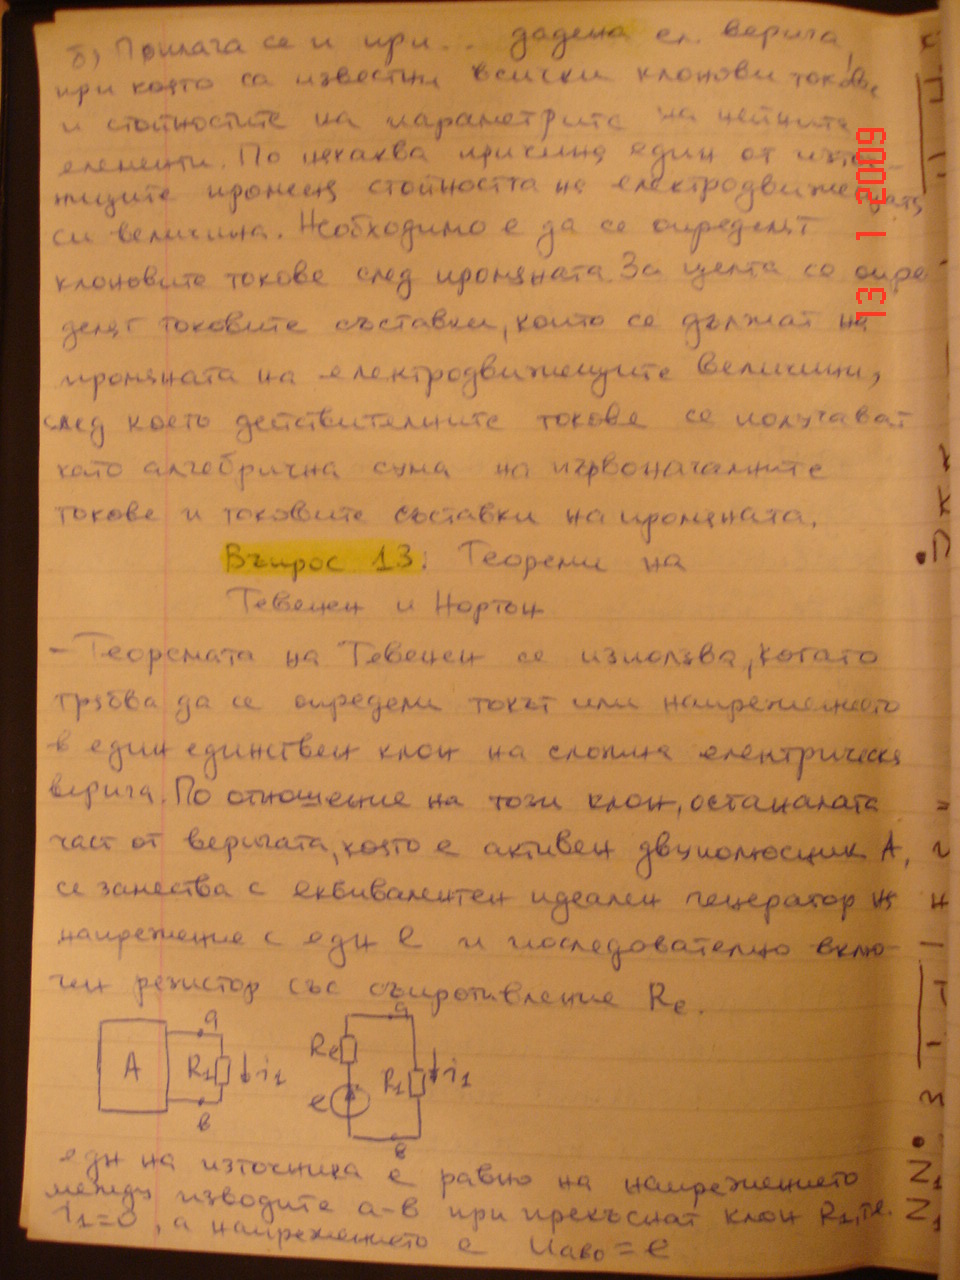 б) Прилага се и при... дадена ел. верига,
при която са известни всички клонови токове
и стойностите на параметрите на нейните
елементи. По някаква причина един от източ-
ниците променя стойността на електродвижещата
си величина. Необходимо е да се определят
клоновите токове след промяната. За целта се опре-
делят токовите съставки, които се дължат на
промяната на електродвижещите величини,
след което действителните токове се получават
като алгебрична сума на първоначалните
токове и токовите съставки на промяната.
Въпрос 13: Теореми на
Тевенен и Нортон
- Теоремата на Тевенен се използва, когато
трябва да се определи токът или напрежението
в един единствен клон на сложна електрическа
верига. По отношение на този клон, останалата
част от веригата, която е активен двуполюсник А,
се замества с еквивалентен идеален генератор на
напрежение с едн e и последователно вклю-
чен резистор със съпротивление Re.
a a
A R1 ↓i1 Re R1 ↓i1
e
в в
едн на източника е равно на напрежението
между изводите а-в при прекъснат клон R1, т.е.
i1=0, а напрежението е Uаво = e
13 1 2009